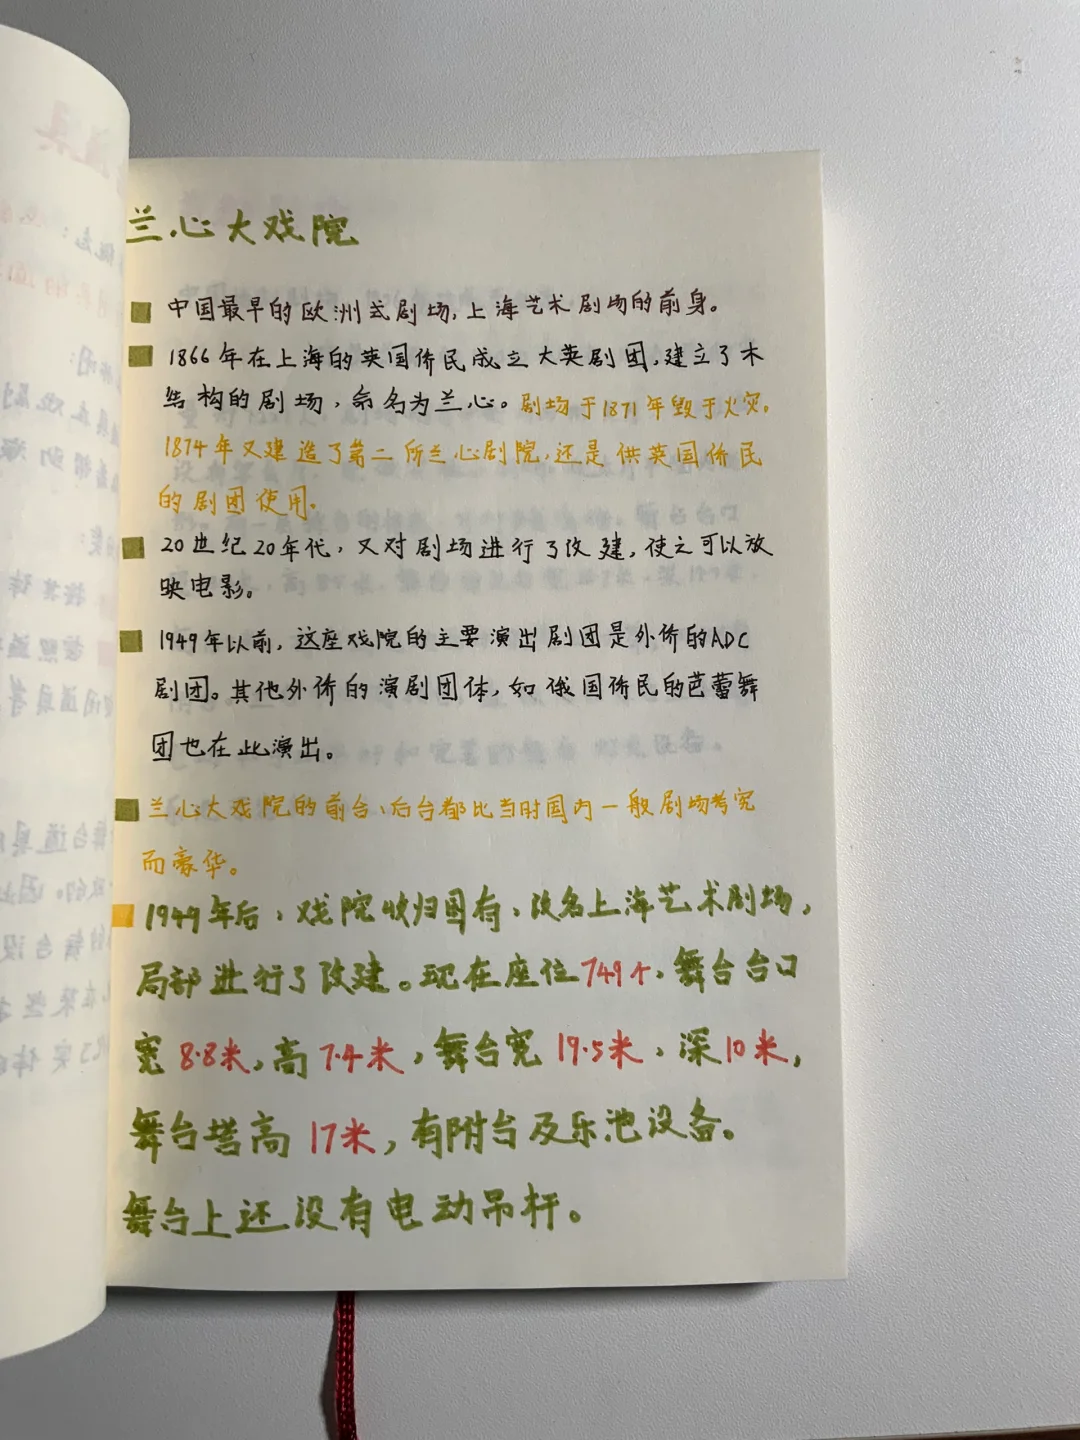 兰心大戏院
中国最早的欧洲式剧场,上海艺术剧场的前身。
1866年在上海的英国侨民成立大英剧团,建立了木
结构的剧场,命名为兰心。剧场于1871年毁于火灾。
1874年又建造了第二所兰心剧院,还是供英国侨民
的剧团使用。
20世纪20年代,又对剧场进行了改建,使之可以放
映电影。
1949年以前,这座戏院的主要演出剧团是外侨的ADC
剧团。其他外侨的演剧团体,如俄国侨民的芭蕾舞
团也在此演出。
兰心大戏院的前台、后台都比当时国内一般剧场考究
而豪华。
1949年后,戏院收归国有,改名上海艺术剧场,
局部进行了改建。现在座位749个,舞台台口
宽8.8米,高7.4米,舞台宽19.5米,深10米,
舞台塔高17米,有附台及乐池设备。
舞台上还没有电动吊杆。